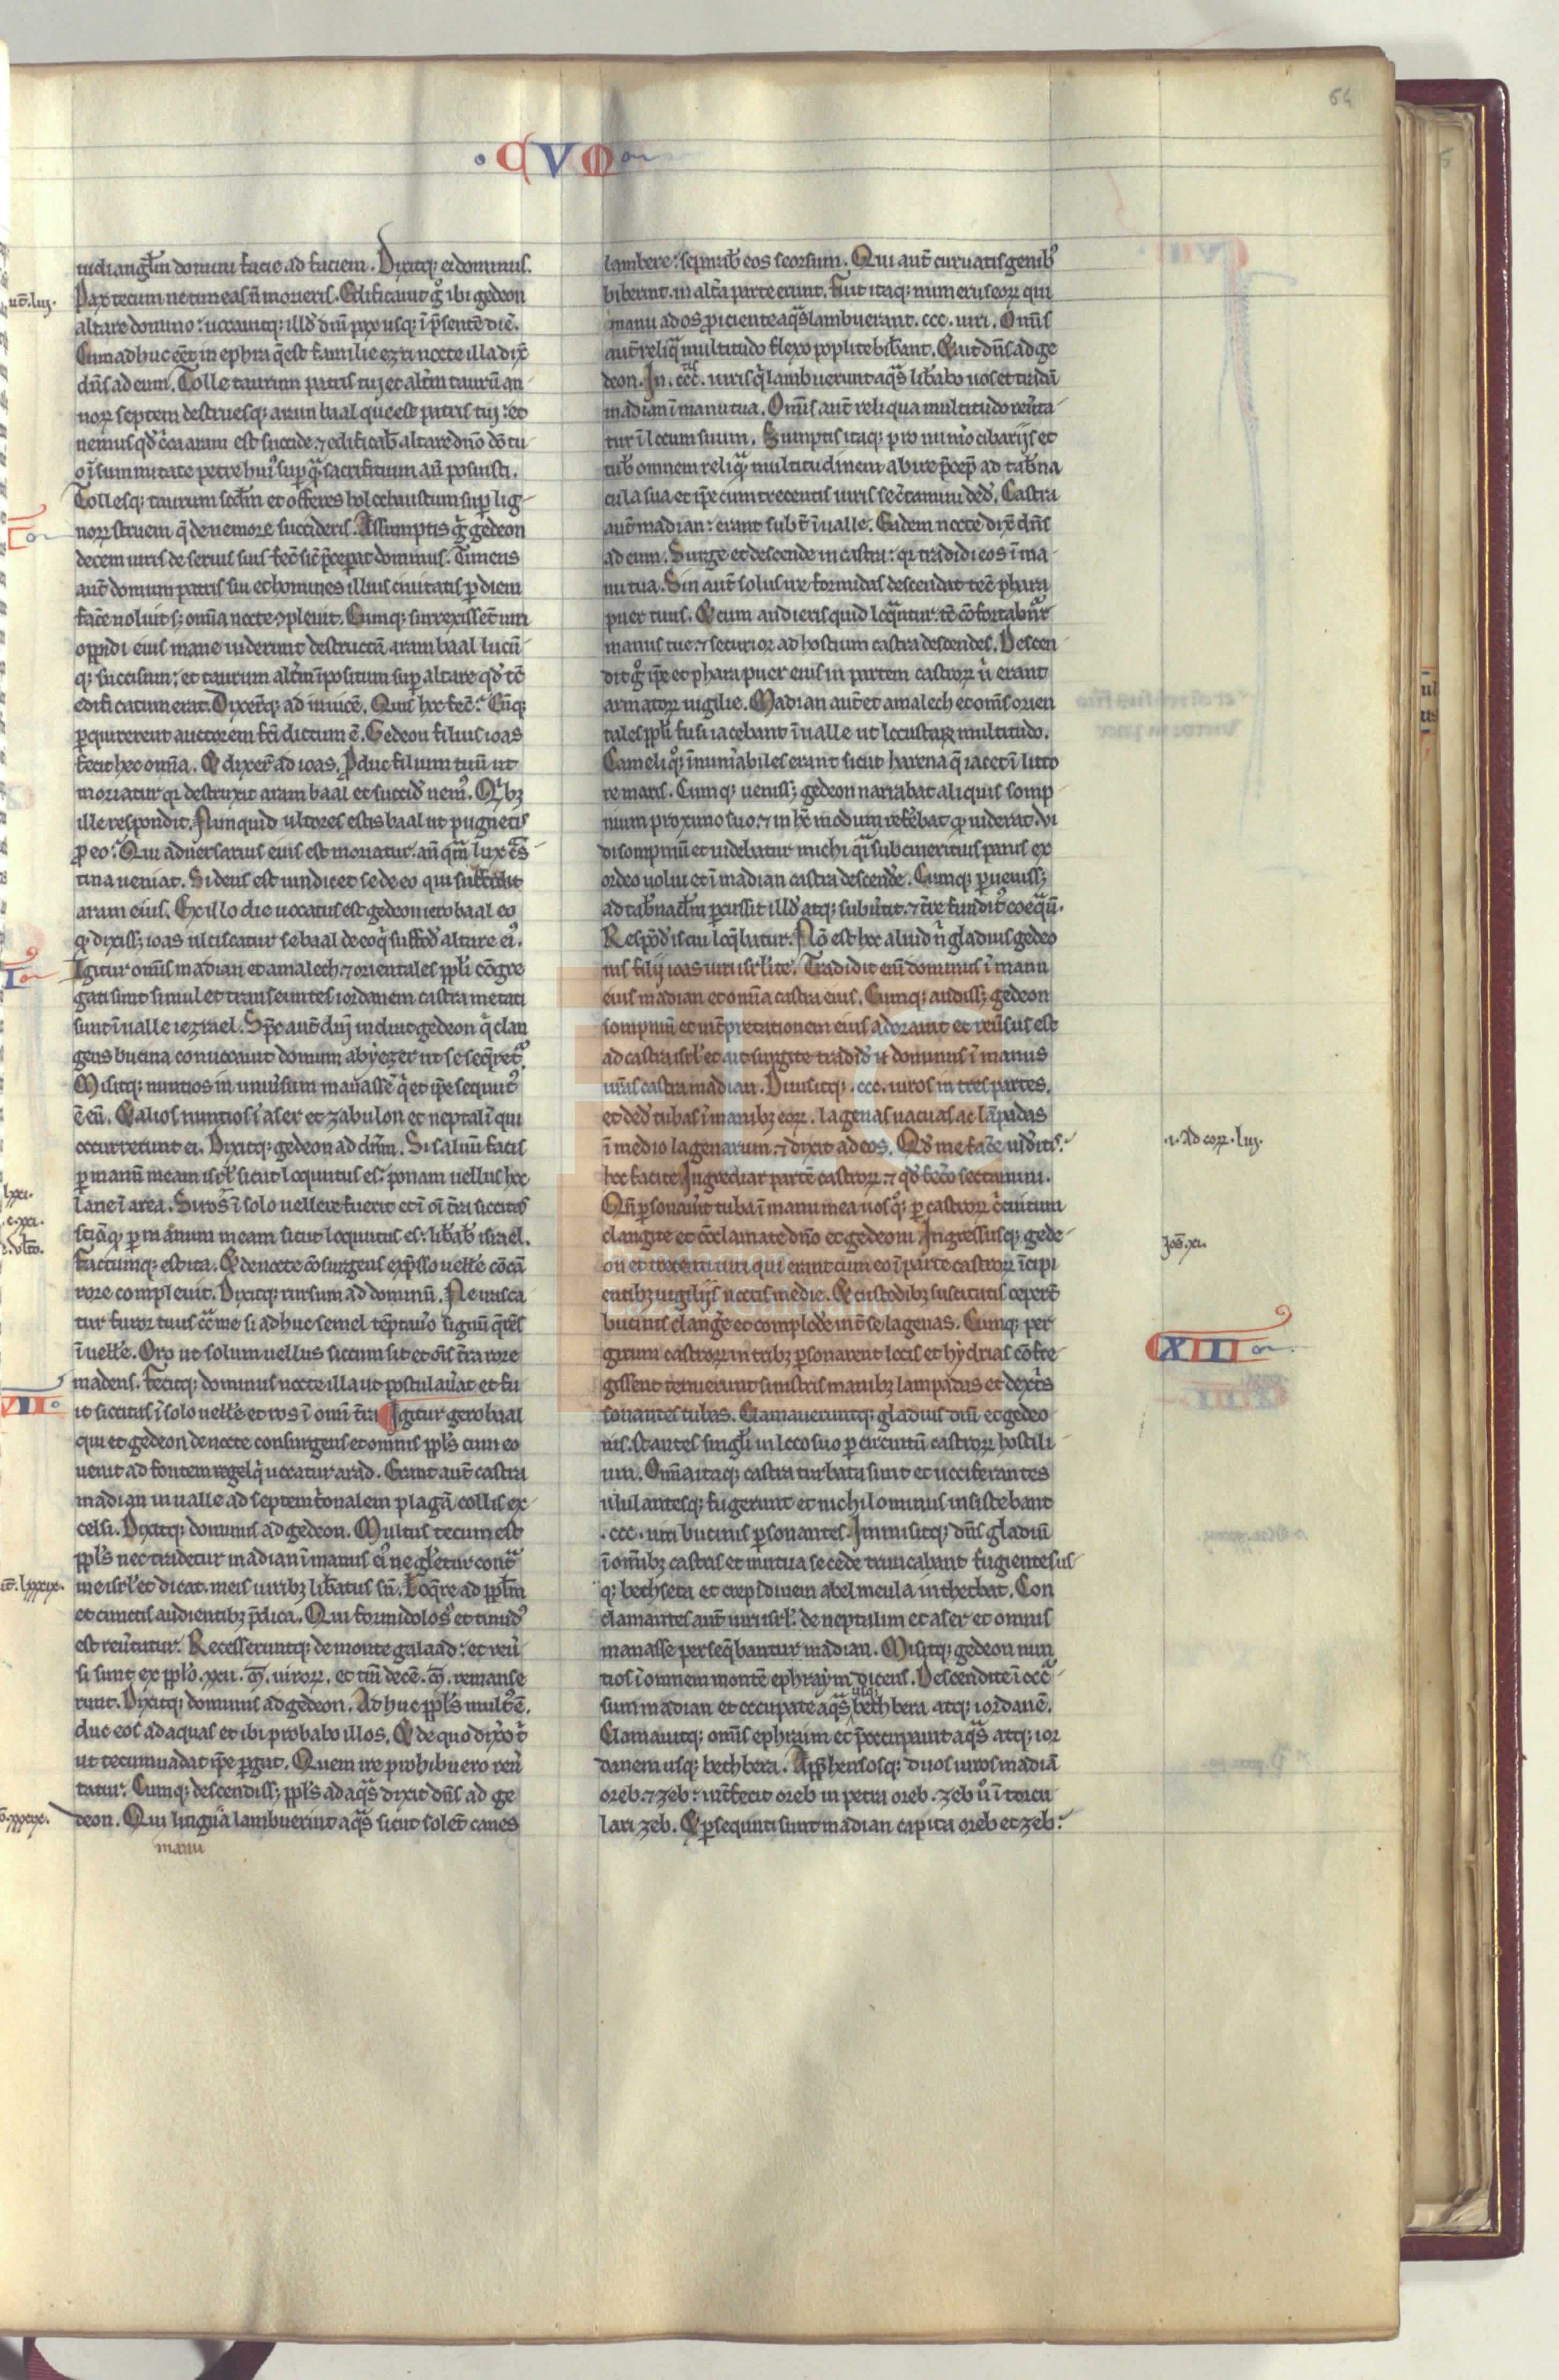 64
· CVM
uidi angl̄m domini facie ad faciem. Dixitq; ei dominus.
Pax tecum ne timeas ñ morieris. Edificauit gͦ ibi gedeon
altare domino: uocauitq; illd̄ dn̄i pax usq; ī p̄sentē diē.
Cum adhuc eēt in ephra q̄ est familie ezri nocte illa dix̄
dn̄s ad eum. Tolle taurum patris tui et alt̄m taurū an
norꝝ septem destruesq; aram baal que est patris tui: et
nemus qd̄ c̄ca aram est succide ⁊ edificab̄ altare dn̄o dō tu
o ī summitate petre huiꝰ suꝑ q̄ sacrificium an̄ posuisti.
Tollesq; taurum scd̄m et offeres holocaustum suꝑ lig
norꝝ struem q̄ de nemore succideris. Assumptis gͦ gedeon
decem uiris de seruis suis fec̄ sic̄ p̄ceperat dominus. Timens
aut̄ domum patris sui et homines illius ciuitatis ꝑ diem
fac̄e noluit s; omīa nocte ꝯpleuit. Cumq; surrexissēt uiri
oppidi eius mane uiderunt destructā aram baal lucū
q; succisum: et taurum alt̄m īpositum suꝑ altare qd̄ tc̄
edificatum erat. Dixer̄tq; ad inuicē. Quis hoc fec̄: Cūq;
ꝑquirerent auctorem fc̄i dictum ē. Gedeon filius ioas
fecit hec omīa. Et dixer̄ ad ioas. Produc filium tuū ut
moriatur qꝛ destruxit aram baal et succid̄ nemꝰ. Qⁱbꝫ
ille respondit. Nunquid ultores estis baal ut pugnetis
ꝓ eo: Qui aduersarius eius est moriatur. an̄ qͣm lux cͣs
tina ueniat. Si deus est uindicet se de eo qui suffodit
aram eius. Ex illo die uocatus est gedeon ierobaal eo
qꝫ dixiss; ioas ulciscatur se baal de eo q̄ suffod̄ altare eiꝰ.
Igitur om̄s madian et amalech ⁊ orientales ppl̄i cōgre
gati sunt simul et transeuntes iordanem castra metati
sunt ī ualle iezrael. Sp̄c aut̄ dn̄i induit gedeon q̄ clan
gens bucina conuocauit domum abyezer ut se seq̄retͬ.
Misitq; nuntios in uniūsum manassē q̄ et ip̄e sequutꝰ
ē eū. Et alios nuntios ī aser et zabulon et neptali qui
occurrerunt ei. Dixitq; gedeon ad dn̄m. Si saluū facis
ꝑ manū meam isrl̄ sicut loquutus es: ponam uellus hoc
lane ī area. Si ros ī solo uellere fuerit et ī oī t̄ra siccitas
sciā qꝫ ꝑ manum meam sicut loquutus es: lib̄ab̄ israel.
Factumq; est ita. Et de nocte cōsurgens exp̄sso uell̄e cōcā
rore compleuit. Dixitq; rursum ad dominū. Ne irasca
tur furor tuus cͣ me si adhuc semel tēptauͦo signū q̄rēs
ī uell̄e. Oro ut solum uellus siccum sit et oīs t̄ra rore
madens. Fecitq; dominus nocte illa ut postulauͤat et fu
it siccitas ī solo uell̄e et ros ī omī t̄ra. Igitur gerobaal
qui et gedeon de nocte consurgens et omnis ppl̄s cum eo
uenit ad fontem regel q̄ uocatur arad. Erant aut̄ castra
madian in ualle ad septemt̄onalem plagā collis ex
celsi. Dixitq; dominus ad gedeon. Multus tecum est
ppl̄s nec tradetur madian ī manus eiꝰ ne gl̄etur contͣ
me isrl̄ et dicat. meis uiribꝫ lib̄atus sū. Loq̄re ad ppl̄m
et cunctis audientibꝫ p̄dica. Qui formidolosꝰ et timidꝰ
est reūtatur. Recesseruntq; de monte galaad: et reuͬ
si sunt ex ppl̄o .xxii. m̄. uirorꝝ. et tm̄ decē .m̄. remanse
runt. Dixitq; dominus ad gedeon. Adhuc ppl̄s multꝰ ē.
duc eos ad aquas et ibi probabo illos. Et de quo dix̄o t̄
ut tecum uadat ip̄e ꝑgat. Quem ire prohibuero reuͬ
tatur. Cumq; descendiss; ppl̄s ad aqͣs dixit dn̄s ad ge
deon. Qui lingua lambuerint aqͣs sicut solēt canes
manu
lambere: sepaͬb̄ eos seorsum. Qui aut̄ curuatis genibꝰ
biberint. in alt̄a parte erunt. Fuit itaq; numerus eorꝝ qui
manu ad os ꝓiciente aqͣs lambuerant. ccc. uiri. Omīs
aut̄ reliq̄ multitudo flexo poplite bib̄ant. Et ait dn̄s ad ge
deon. In .ccc. uiris q̄ lambuerunt aqͣs lib̄abo uos et tradā
madian ī manu tua. Omīs aut̄ reliqua multitudo reūta
tur ī locum suum. Sumptis itaq; pro num̄o cibarijs et
tub̄ omnem reliqͣ multitudinem abire p̄cep̄ ad tab̄na
cula sua et ip̄e cum trecentis uiris se c̄tamini ded̄. Castra
aut̄ madian: erant subt̄ ī ualle. Eadem nocte dix̄ dn̄s
ad eum. Surge et descende in castra: qꝛ tradidi eos ī ma
nu tua. Sin aut̄ solus ire formidas descendat tec̄ phara
puer tuus. Et cum audieris quid loqͣntur. tc̄ cōfortabn̄r
manus tue. ⁊ securior ad hostium castra descendes. Descen
dit gͦ ip̄e et phara puer eius in partem castrorꝝ uͥ erant
armatorꝝ uigilie. Madian aut̄ et amalech et om̄s orien
tales ppl̄i fusi iacebant ī ualle ut locustarꝝ multitudo.
Cameli qͦꝫ īnum̄abiles erant sicut harena q̄ iacet ī litto
re maris. Cumq; ueniss; gedeon narrabat aliquis somp
nium proximo suo. ⁊ in hc̄ modum refēbat qꝫ uiderat. Vi
di sompniū et uidebatur michi q̄i subcinericius panis ex
ordeo uolui et ī madian castra descendē. Cumq; ꝑueniss;
ad tab̄nacl̄m ꝑcussit illd̄ atq; subūtit. ⁊ t̄re funditꝰ coequͣ.
Respōd̄ is cui loq̄batur. Nō est hoc aliud n̄ gladius gedeo
nis filij ioas uiri isrl̄ite. Tradidit eū dominus ī manu
eius madian et omīa castra eius. Cumq; audiss; gedeon
sompniū et int̄pretationem eius adorauit et reūsus est
ad castra isrl̄ et ait surgite tradid̄ n̄ dominus ī manus
ur̄as castra madian. Diuisitq; .ccc. uiros in tres partes.
et ded̄ tubas ī manibꝫ eorꝝ. lagenas uacuas ac lāpadas
ī medio lagenarum. ⁊ dixit ad eos. Qd̄ me fac̄e uid̄itis:
hoc facite. Ingrediar partē castrorꝝ. ⁊ qd̄ fec̄o sectamini.
Qn̄ ꝑsonauͤit tuba ī manu mea uos qͦꝫ ꝑ castrorꝝ c̄cuitum
clangite et cōclamate dn̄o et gedeoni. Ingressusq; gede
on et trecenti uiri qui erant cum eo ī parte castrorꝝ īcipi
entibꝫ uigilijs noctis medie. Et custodibꝫ suscitatis ceper̄t
bucinis clangē et complodē int̄ se lagenas. Cumq; per
girum castrorꝝ in tribꝫ ꝑsonarent locis et hydrias cōfre
gissent tenuerunt sinistris manibꝫ lampadas et dext̄s
sonantes tubas. Clamaueruntq; gladius dn̄i et gedeo
nis. stantes singl̄i in loco suo ꝑ circuitū castrorꝝ hostili
um. Omīa itaq; castra turbata sunt et uociferantes
ululantesq; fugerunt et nichilominus insistebant
.ccc. uiri bucinis ꝑsonantes. Immisitq; dn̄s gladiū
ī omībꝫ castris et mutua se cede truncabant fugientes us
q; bethseta et crepidinem abelmeula in thebbat. Con
clamantes aut̄ uiri isrl̄. de neptalim et aser et omnis
manasse perseq̄bantur madian. Misitq; gedeon nun
tios ī omnem montē ephraym dicens. Descendite ī occͬ
sum madian et occupate aqͣs usq; bethbera atq; iordanē.
Clamauitq; omīs ephraim et p̄occupauit aqͣs atq; ior
danem usq; bethbera. App̄hensosq; duos uiros madiā
oreb. ⁊ zeb: int̄fecit oreb in petra oreb. zeb uͦ ī torcu
lari zeb. Et ꝑsequuti sunt madian capita oreb et zeb:
.i. ad corꝝ. luj.
Jos̄. xi.
XIII
Fundación
Lázaro Galdiano